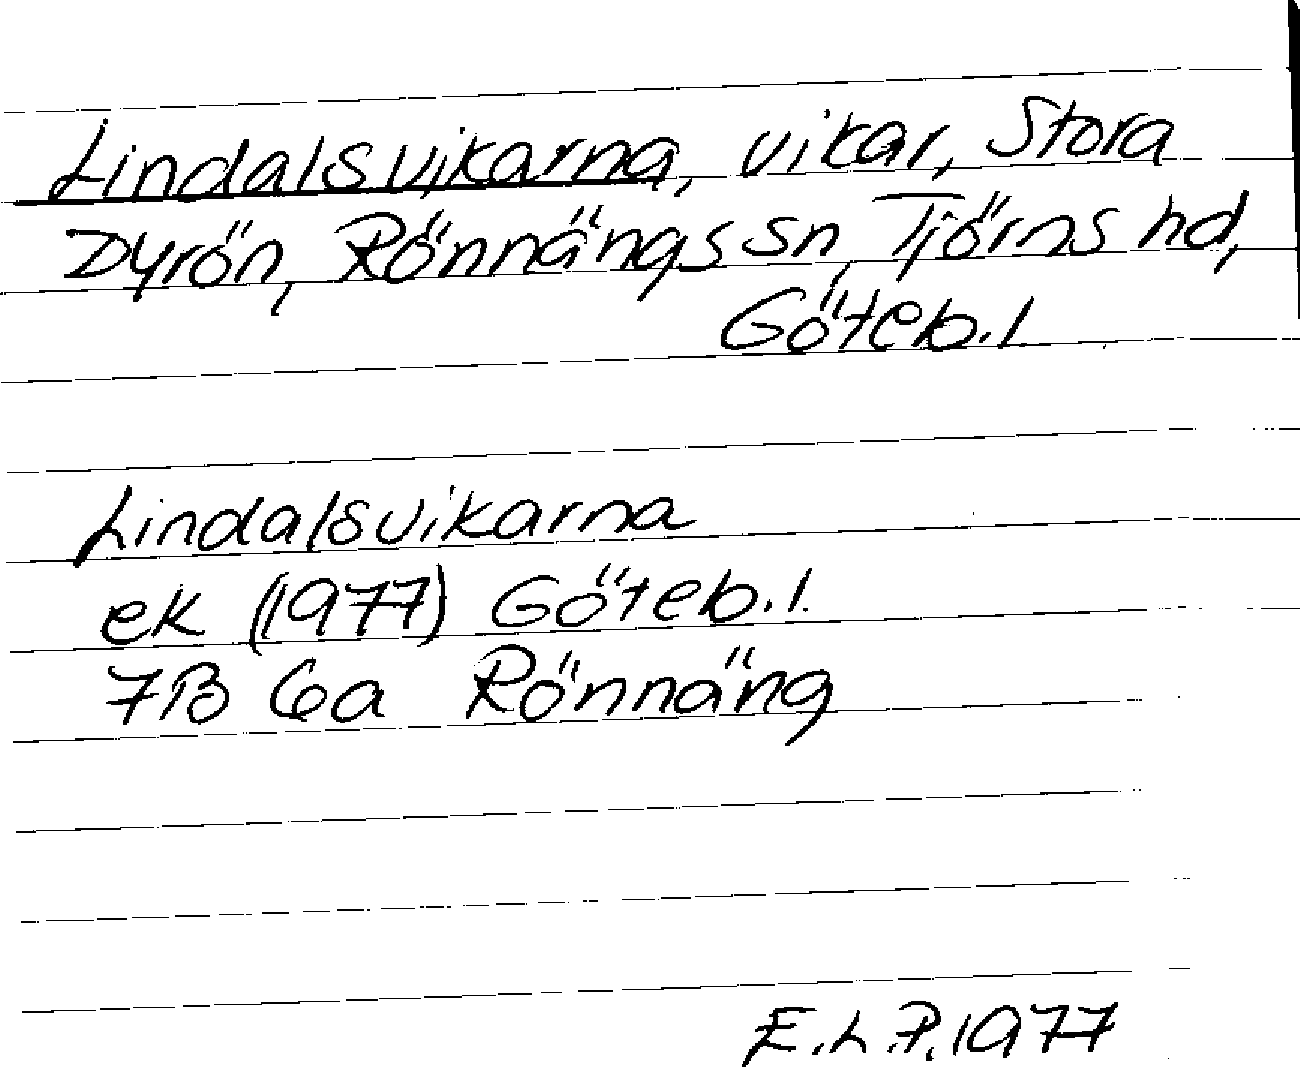 Lindalsvikarna, vikar, Stora
Dyrön, Rönnängs sn, Tjörns hd,
Göteb. l
Lindalsvikarna
ek (1977) Göteb. l.
7B 6a Rönnäng
E.L.P. 1977